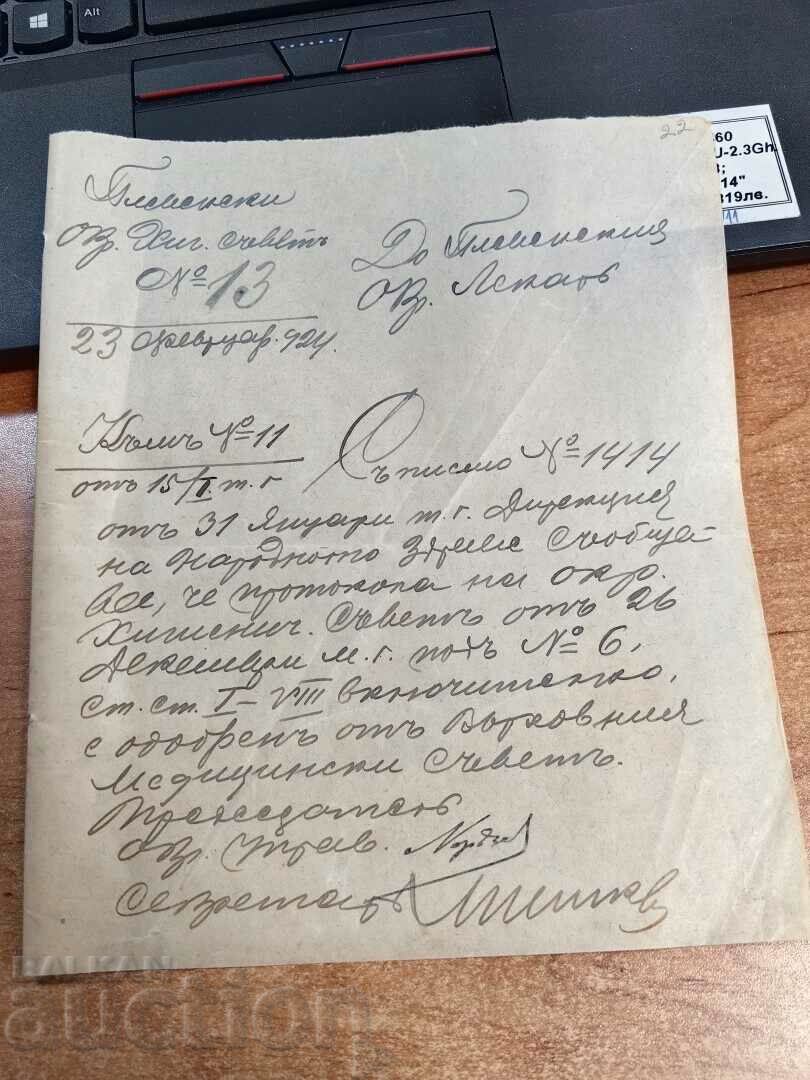 Alt
22
60
U-2.3Gh
3;
14"
319лв.
11
Плѣвенски
Окр. Хиг. съветъ
№ 13
23 февруар. 924.
До Плѣвенския
Окр. Лекарь
Къмъ № 11
отъ 15/I. т. г.
Съ писмо № 1414
отъ 31 Януари т. г. Дирекция
на Народното Здраве съобща-
ва, че протокола на окр.
Хигиенич. съветъ отъ 26
Декември м. г. подъ № 6,
ст. ст. I–VIII включително,
е одобренъ отъ Върховния
Медицински съветъ.
Председатель
Окр. Управ.
Секретарь
BALKAN
auction